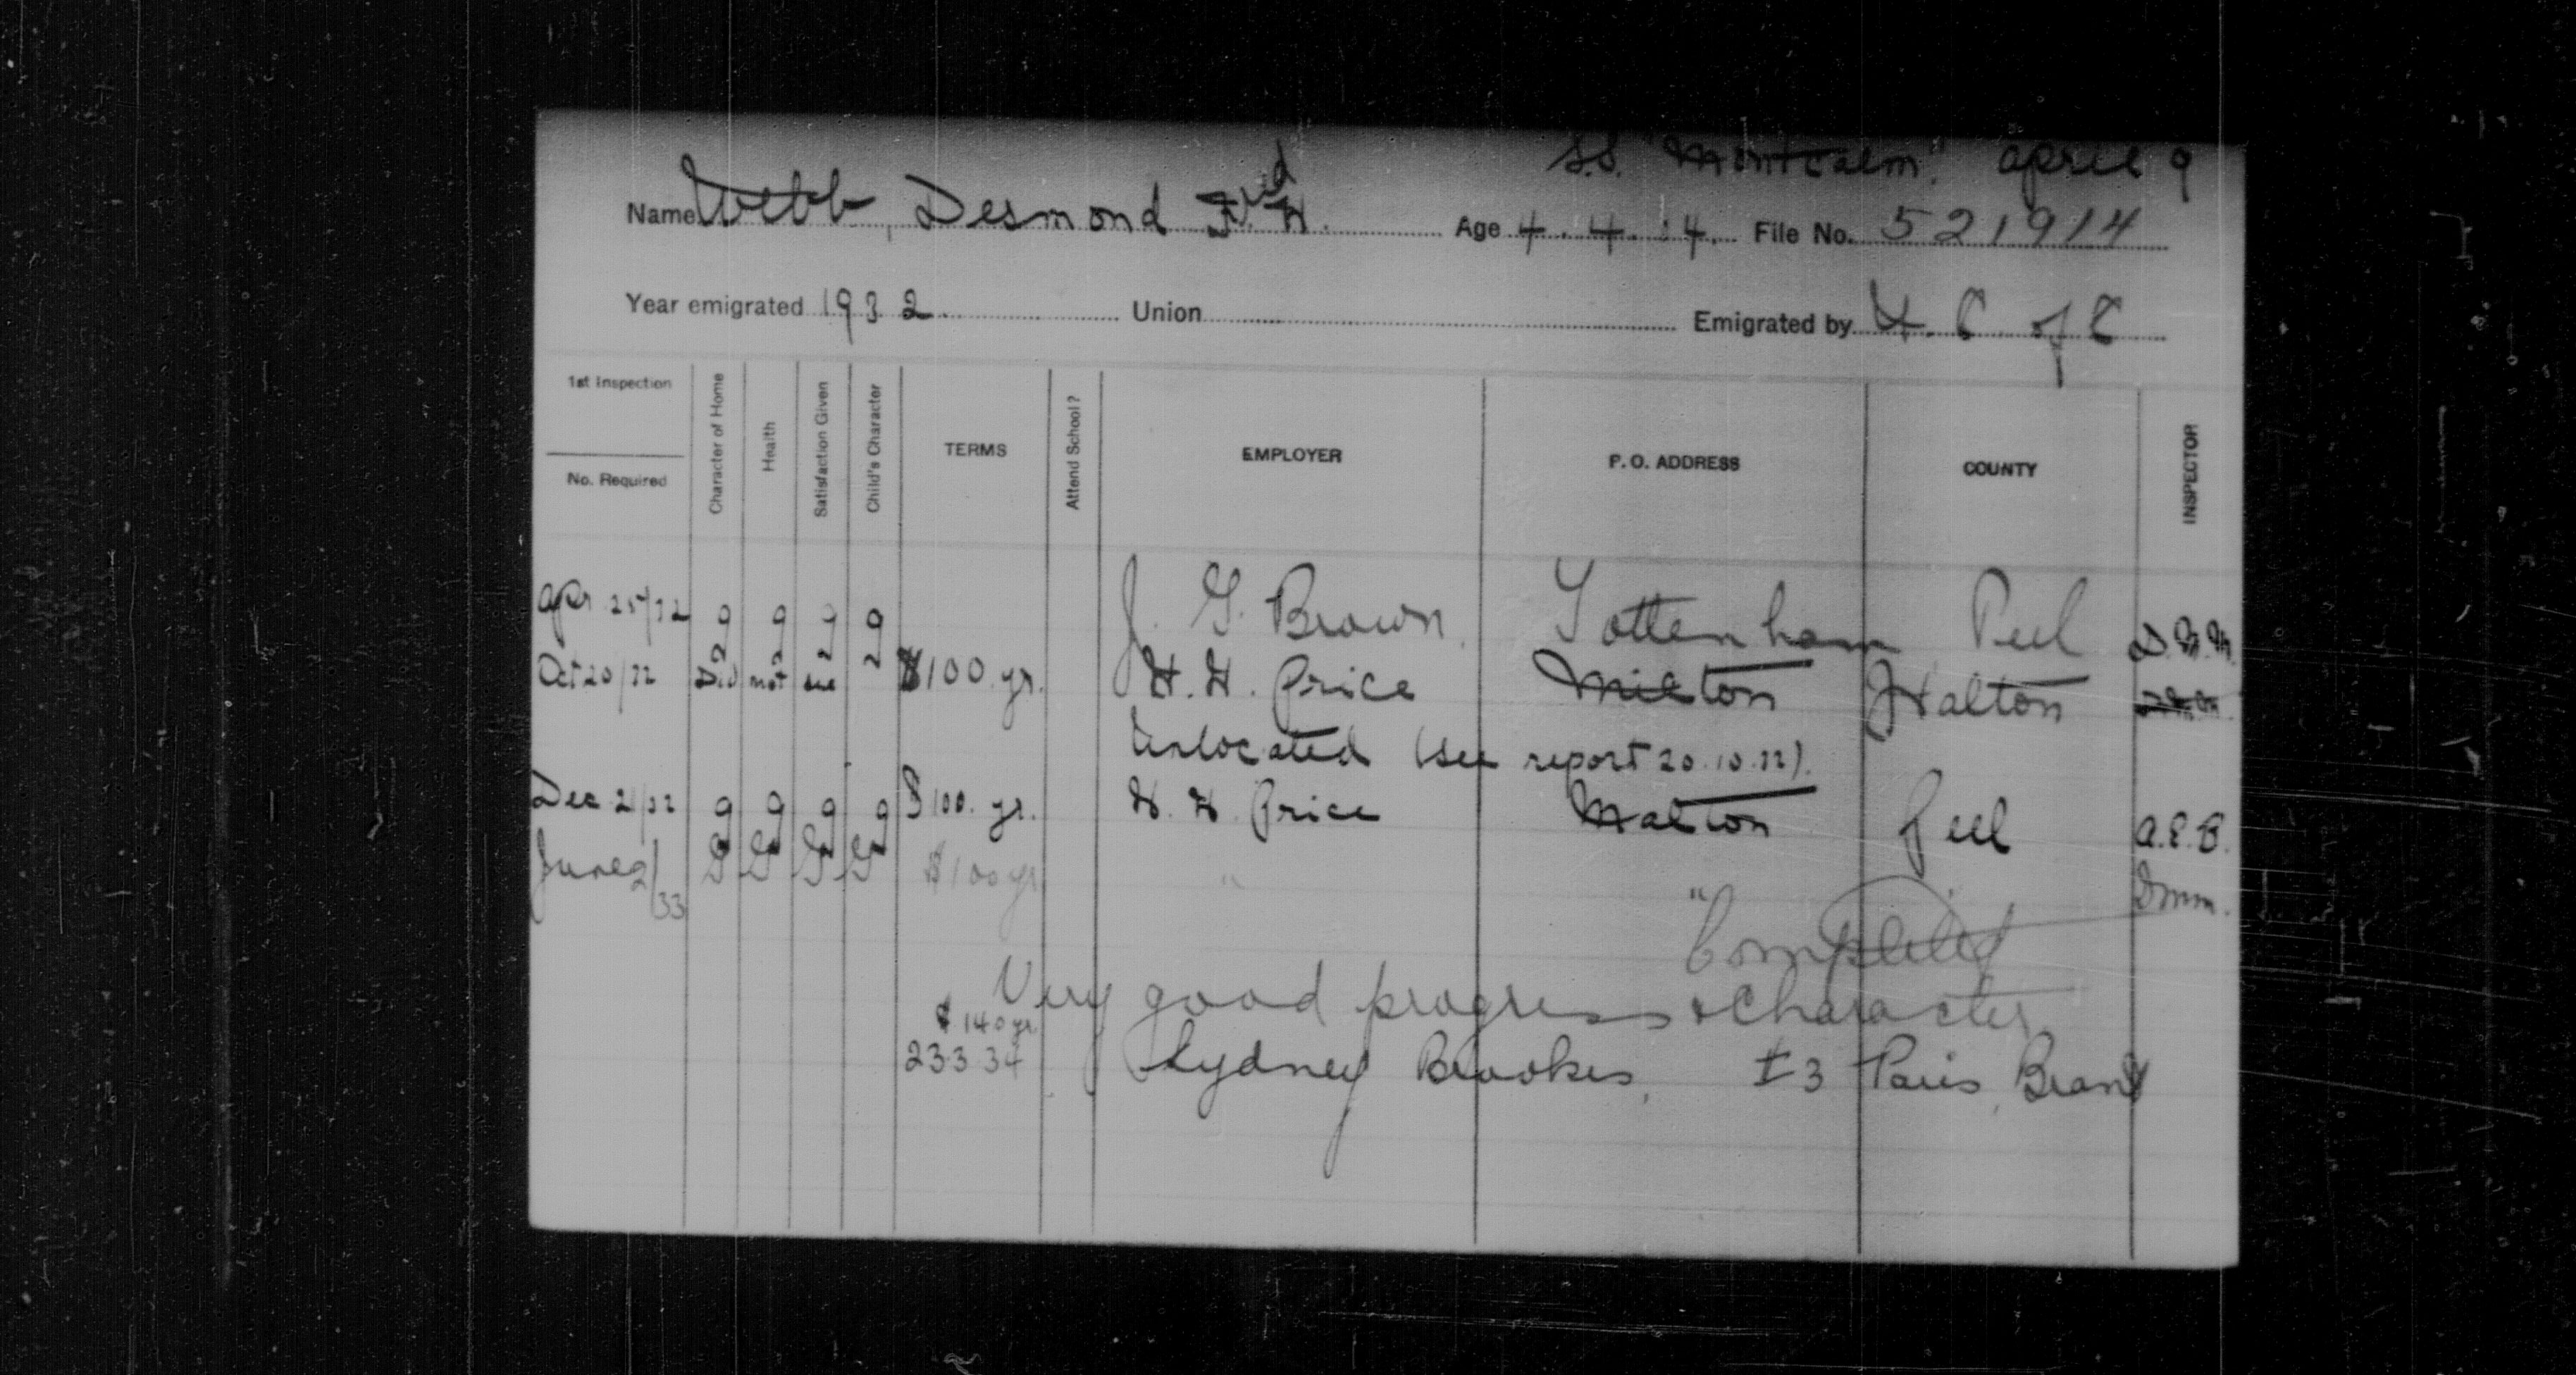 S.S. "Montcalm" April 9
Name Webb, Desmond Fred H. Age 4.4.14. File No. 521914
Year emigrated 1932 Union Emigrated by U. C of C
1st Inspection
No. Required
Character of Home
Health
Satisfaction Given
Child's Character
TERMS
Attend School?
EMPLOYER
P. O. ADDRESS
COUNTY
INSPECTOR
Apr 25/32 g g g g J. G. Brown Tottenham Peel
Oct 20/32 Did not see $100 yr. H. H. Price Milton Halton
Unlocated (see report 20.10.32).
Dec 2/32 g g g g $100. yr. H. H. Price Malton Peel A.E.B.
June 2/33 G G G G $100 yr " " Dmm.
Completed
Very good progress & Character
$140 yr
23 3 34 Sydney Brookes, #3 Paris, Brant